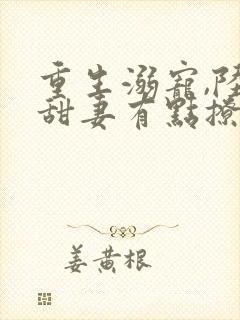 重生溺寵,陸
甜妻有點撩
姜黃根